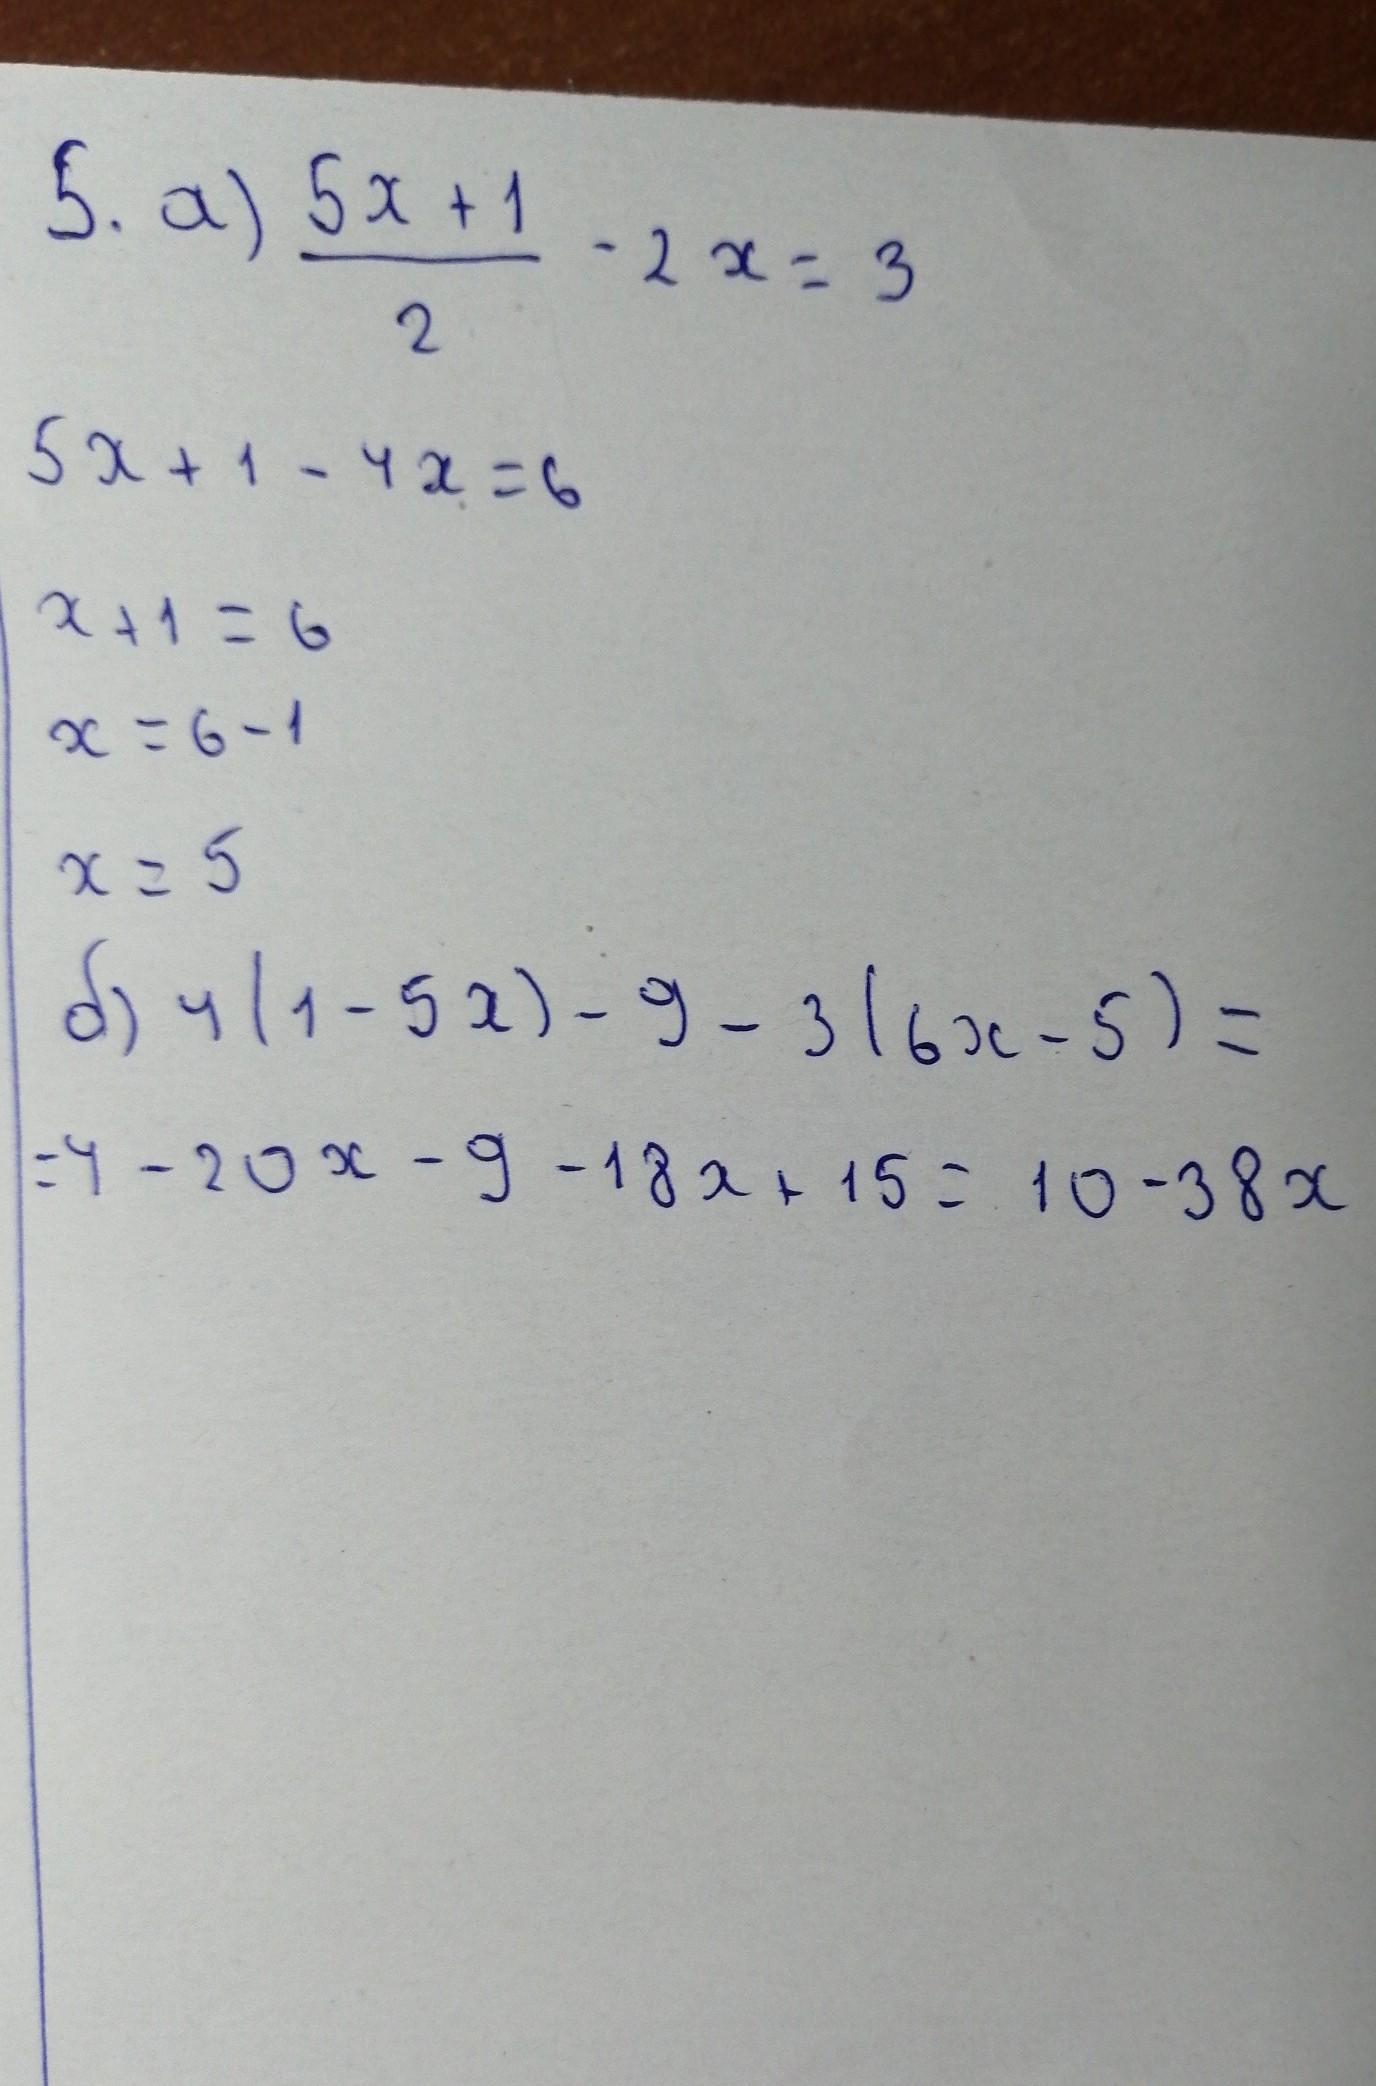 5. а) (5x + 1)/2 - 2x = 3
5x + 1 - 4x = 6
x + 1 = 6
x = 6 - 1
x = 5
б) 4(1 - 5x) - 9 - 3(6x - 5) =
= 4 - 20x - 9 - 18x + 15 = 10 - 38x